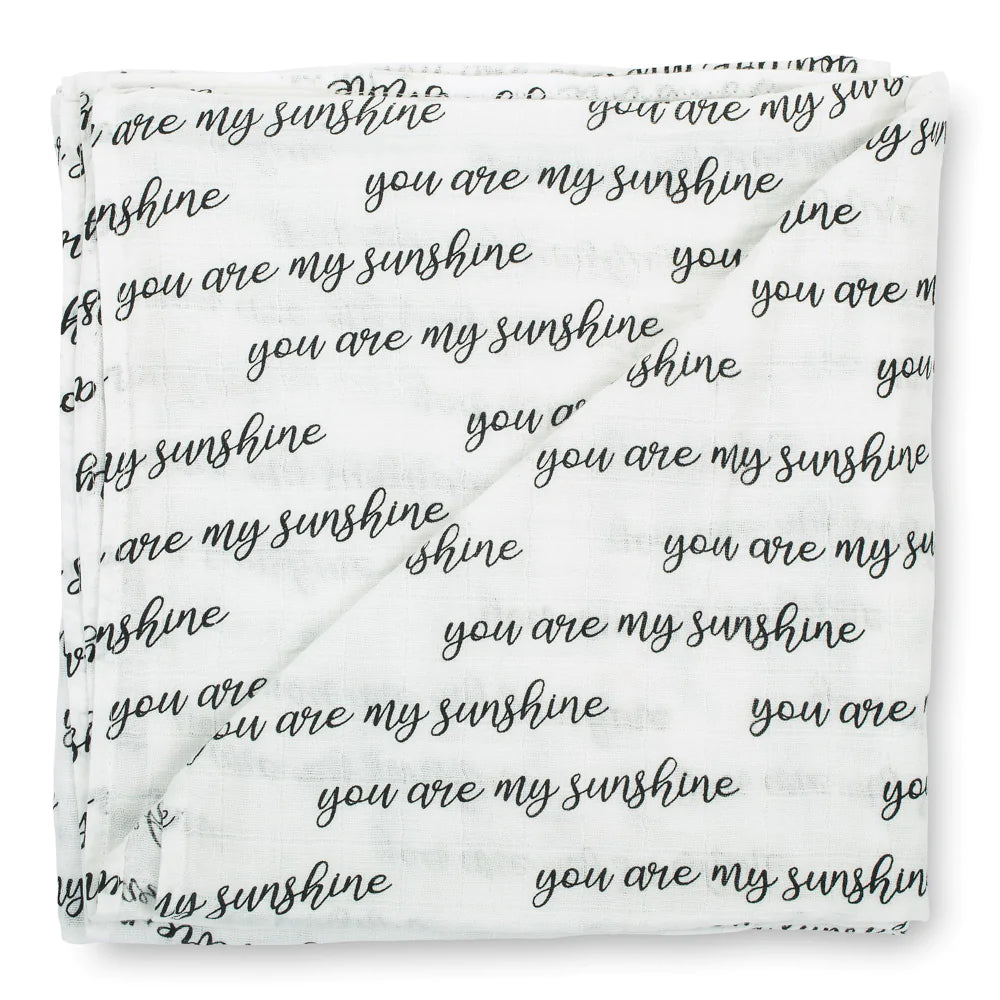 are my sunshine you are my
you are my sunshine
nshine ine
you are my sunshine you
you are
you are my sunshine
shine you
you a
my sunshine you are my sunshine
are my sunshine
shine you are my su
nshine you are my sunshine
you are
ou are my sunshine you are
you are my sunshine yo
my sunshine you are my sunshin